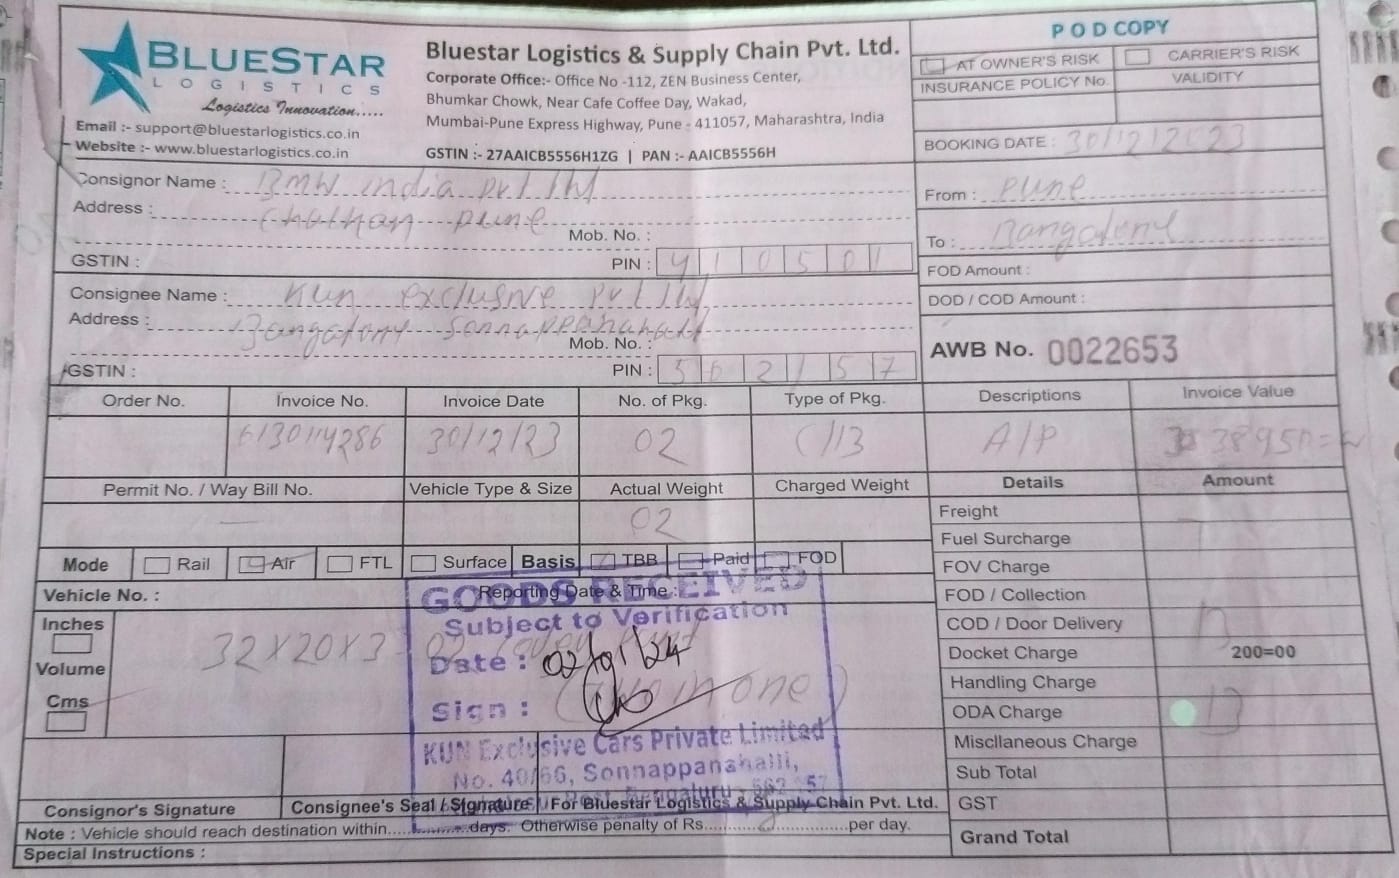 BLUESTAR
LOGISTICS
Logistics Innovation.....
Email :- support@bluestarlogistics.co.in
Website :- www.bluestarlogistics.co.in
Bluestar Logistics & Supply Chain Pvt. Ltd.
Corporate Office:- Office No -112, ZEN Business Center,
Bhumkar Chowk, Near Cafe Coffee Day, Wakad,
Mumbai-Pune Express Highway, Pune - 411057, Maharashtra, India
GSTIN :- 27AAICB5556H1ZG | PAN :- AAICB5556H
POD COPY
AT OWNER'S RISK CARRIER'S RISK
INSURANCE POLICY No. VALIDITY
BOOKING DATE : 30/12/2023
From : Pune
To : Bangalore
FOD Amount :
DOD / COD Amount :
AWB No. 0022653
Consignor Name : BMW india pvt ltd
Address : Chakan pune
Mob. No. :
GSTIN : PIN : 410501
Consignee Name : Kun exclusive pvt ltd
Address : Sonnappanahalli
Mob. No. :
GSTIN : PIN : 562157
Order No. Invoice No. Invoice Date No. of Pkg. Type of Pkg. Descriptions Invoice Value
6130114286 30/12/23 02 C/B A/P
Permit No. / Way Bill No. Vehicle Type & Size Actual Weight Charged Weight Details Amount
02
Freight
Fuel Surcharge
FOV Charge
FOD / Collection
COD / Door Delivery
Docket Charge 200=00
Handling Charge
ODA Charge
Miscllaneous Charge
Sub Total
GST
Grand Total
Mode Rail Air FTL Surface Basis TBB Paid FOD
Vehicle No. : Reporting Date & Time :
Inches
Volume
Cms
32X20X3
GOODS RECEIVED
Subject to Verification
Date : 02/01/24
Sign :
KUN Exclusive Cars Private Limited
No. 40/66, Sonnappanahalli,
Bengaluru 562 157
Consignor's Signature Consignee's Seal / Signature For Bluestar Logistics & Supply Chain Pvt. Ltd.
Note : Vehicle should reach destination within............days. Otherwise penalty of Rs............per day.
Special Instructions :